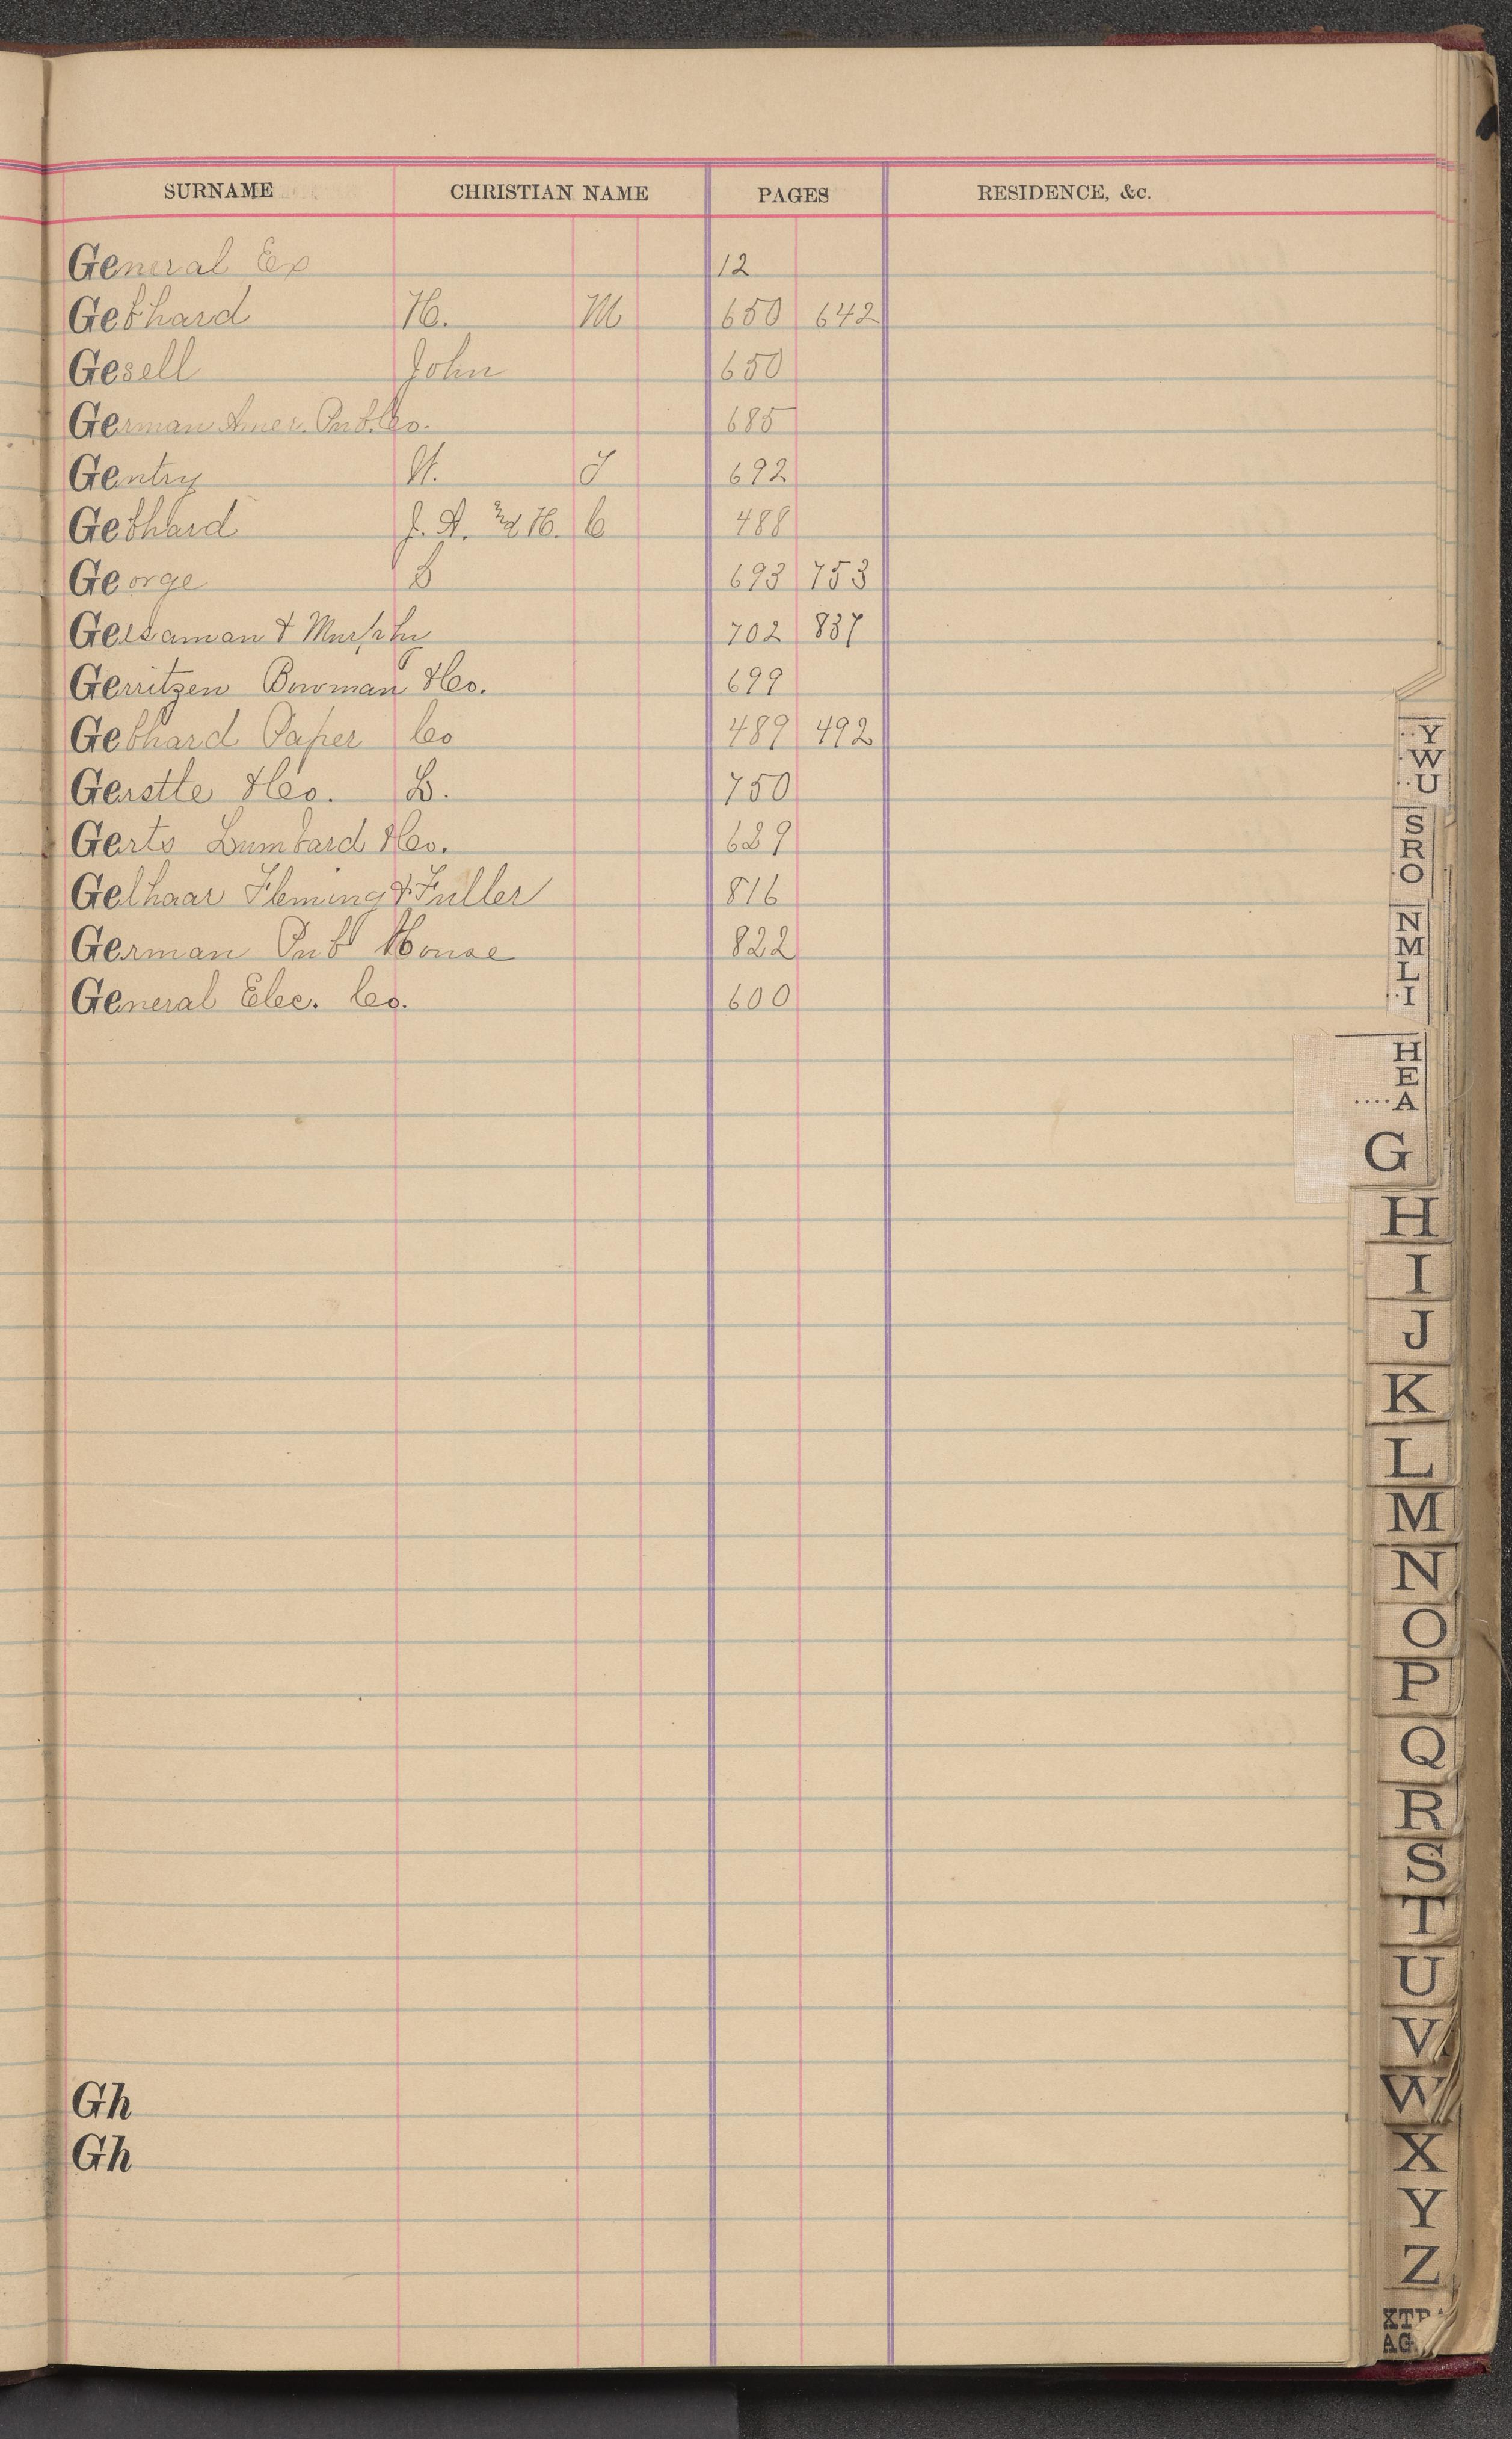 SURNAME CHRISTIAN NAME PAGES RESIDENCE, &c.
General Ex 12
Gebhard H. M 650 642
Gesell John 650
German Amer. Pub. Co. 685
Gentry W. J 692
Gebhard J. A. 2nd H. C 488
George S 693 753
Geisaman & Murphy 702 837
Gerritzen Bowman & Co. 699
Gebhard Paper Co 489 492
Gerstle & Co. L. 750
Gerts Lumbard & Co. 689
Gelhaar Fleming & Fuller 816
German Pub House 822
General Elec. Co. 600
Gh
Gh
Y
W
U
S
R
O
N
M
L
I
H
E
A
G
H
I
J
K
L
M
N
O
P
Q
R
S
T
U
V
W
X
Y
Z